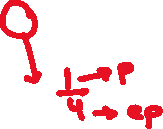 1/4 → p
→ ep